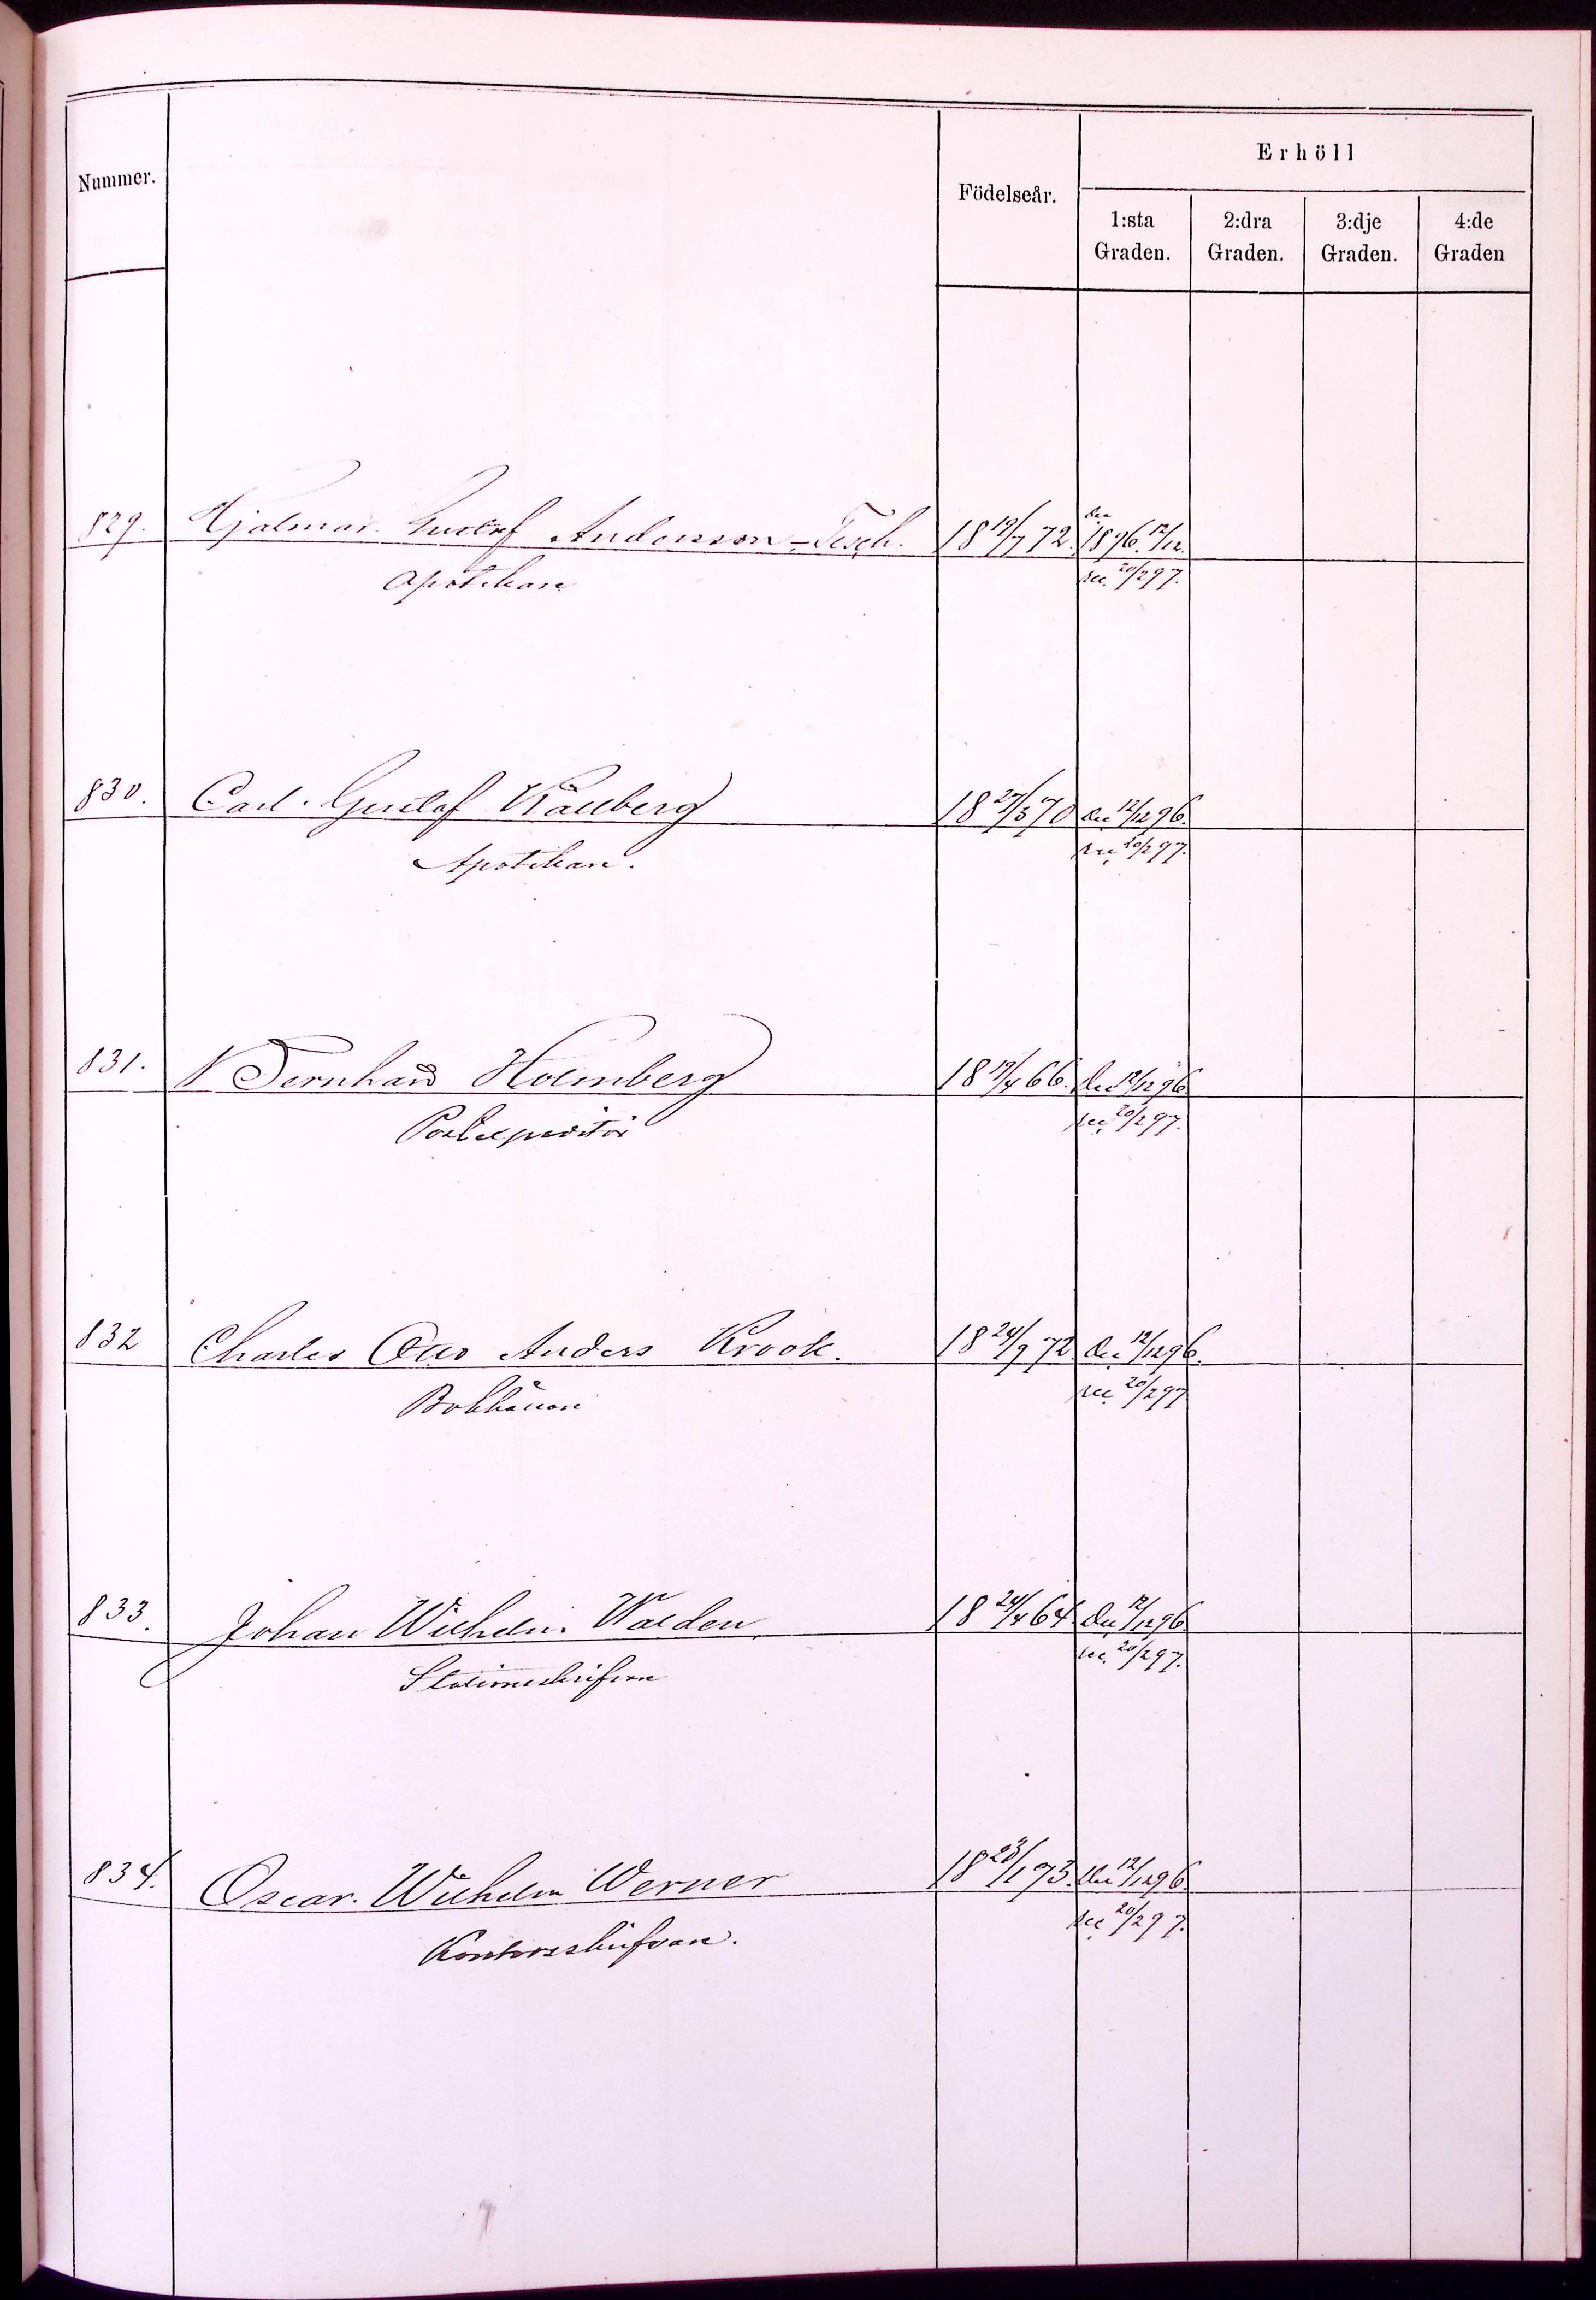 Nummer.
Födelseår.
Erhöll
1:sta Graden.
2:dra Graden.
3:dje Graden.
4:de Graden
829. Hjalmar Gustaf Andersson-Tesch. 18 19/7 72. den 1896. 12/12.
Apotekare rec. 20/2 97.
830. Carl Gustaf Källberg 18 27/3 70 den 12/12 96.
Apotekare. rec. 20/2 97.
831. N Bernhard Holmberg 18 19/4 66. den 12/12 96.
Postexpeditör rec. 20/2 97.
832 Charles Otto Anders Krook. 18 24/9 72 den 12/12 96.
Bokhållare rec. 20/2 97
833. Johan Wilhelm Walden. 18 24/4 64. den 12/12 96.
Stationsskrifvare rec. 20/2 97.
834. Oscar Wilhelm Werner 18 23/1 73. den 12/12 96.
Kontorsskrifvare. rec 20/2 97.